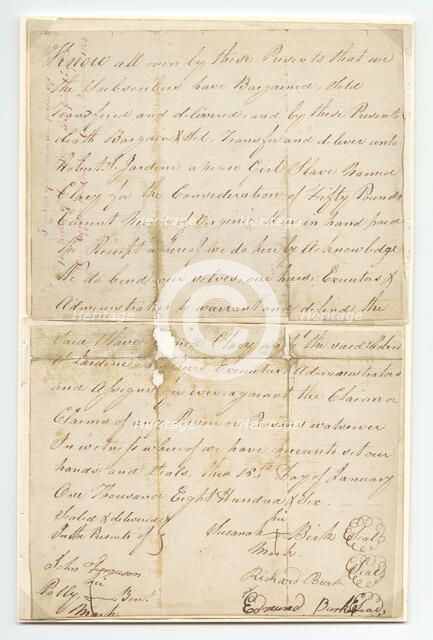 Know all men by these Presents that we
the Subscribers have Bargained, Sold
Transfered and delivered, and by these Presents
doath Bargain & Sel, Transfer and deliver unto
Robert S. Jardine a negro Girl Slave Named
Clary for the Consideration of Fifty Pounds
Current Money of Virginia to us in hand paid
the Receipt whereof we do here by Acknowledge
We do bind our selves, our heirs Executors &
Administrators to warrant and defend the
Said Slave Clary unto the said Robert
S. Jardine his heirs Executors Administrators
and Assigns for ever against the Claim or
Claims of any Person or Persons watsoever
In witness whereof we have hereunto set our
hands and Seals, this 15th Day of January
One Thousand Eight Hundred & Six
Sealed & delivered
In the Presents of
Susanah her Mark Birk Seal
John Ferguson
Richard Seal
Polly her Mark
Edmund Seal
Heritage
Heritage
Heritage
Heritage
Heritage
Heritage